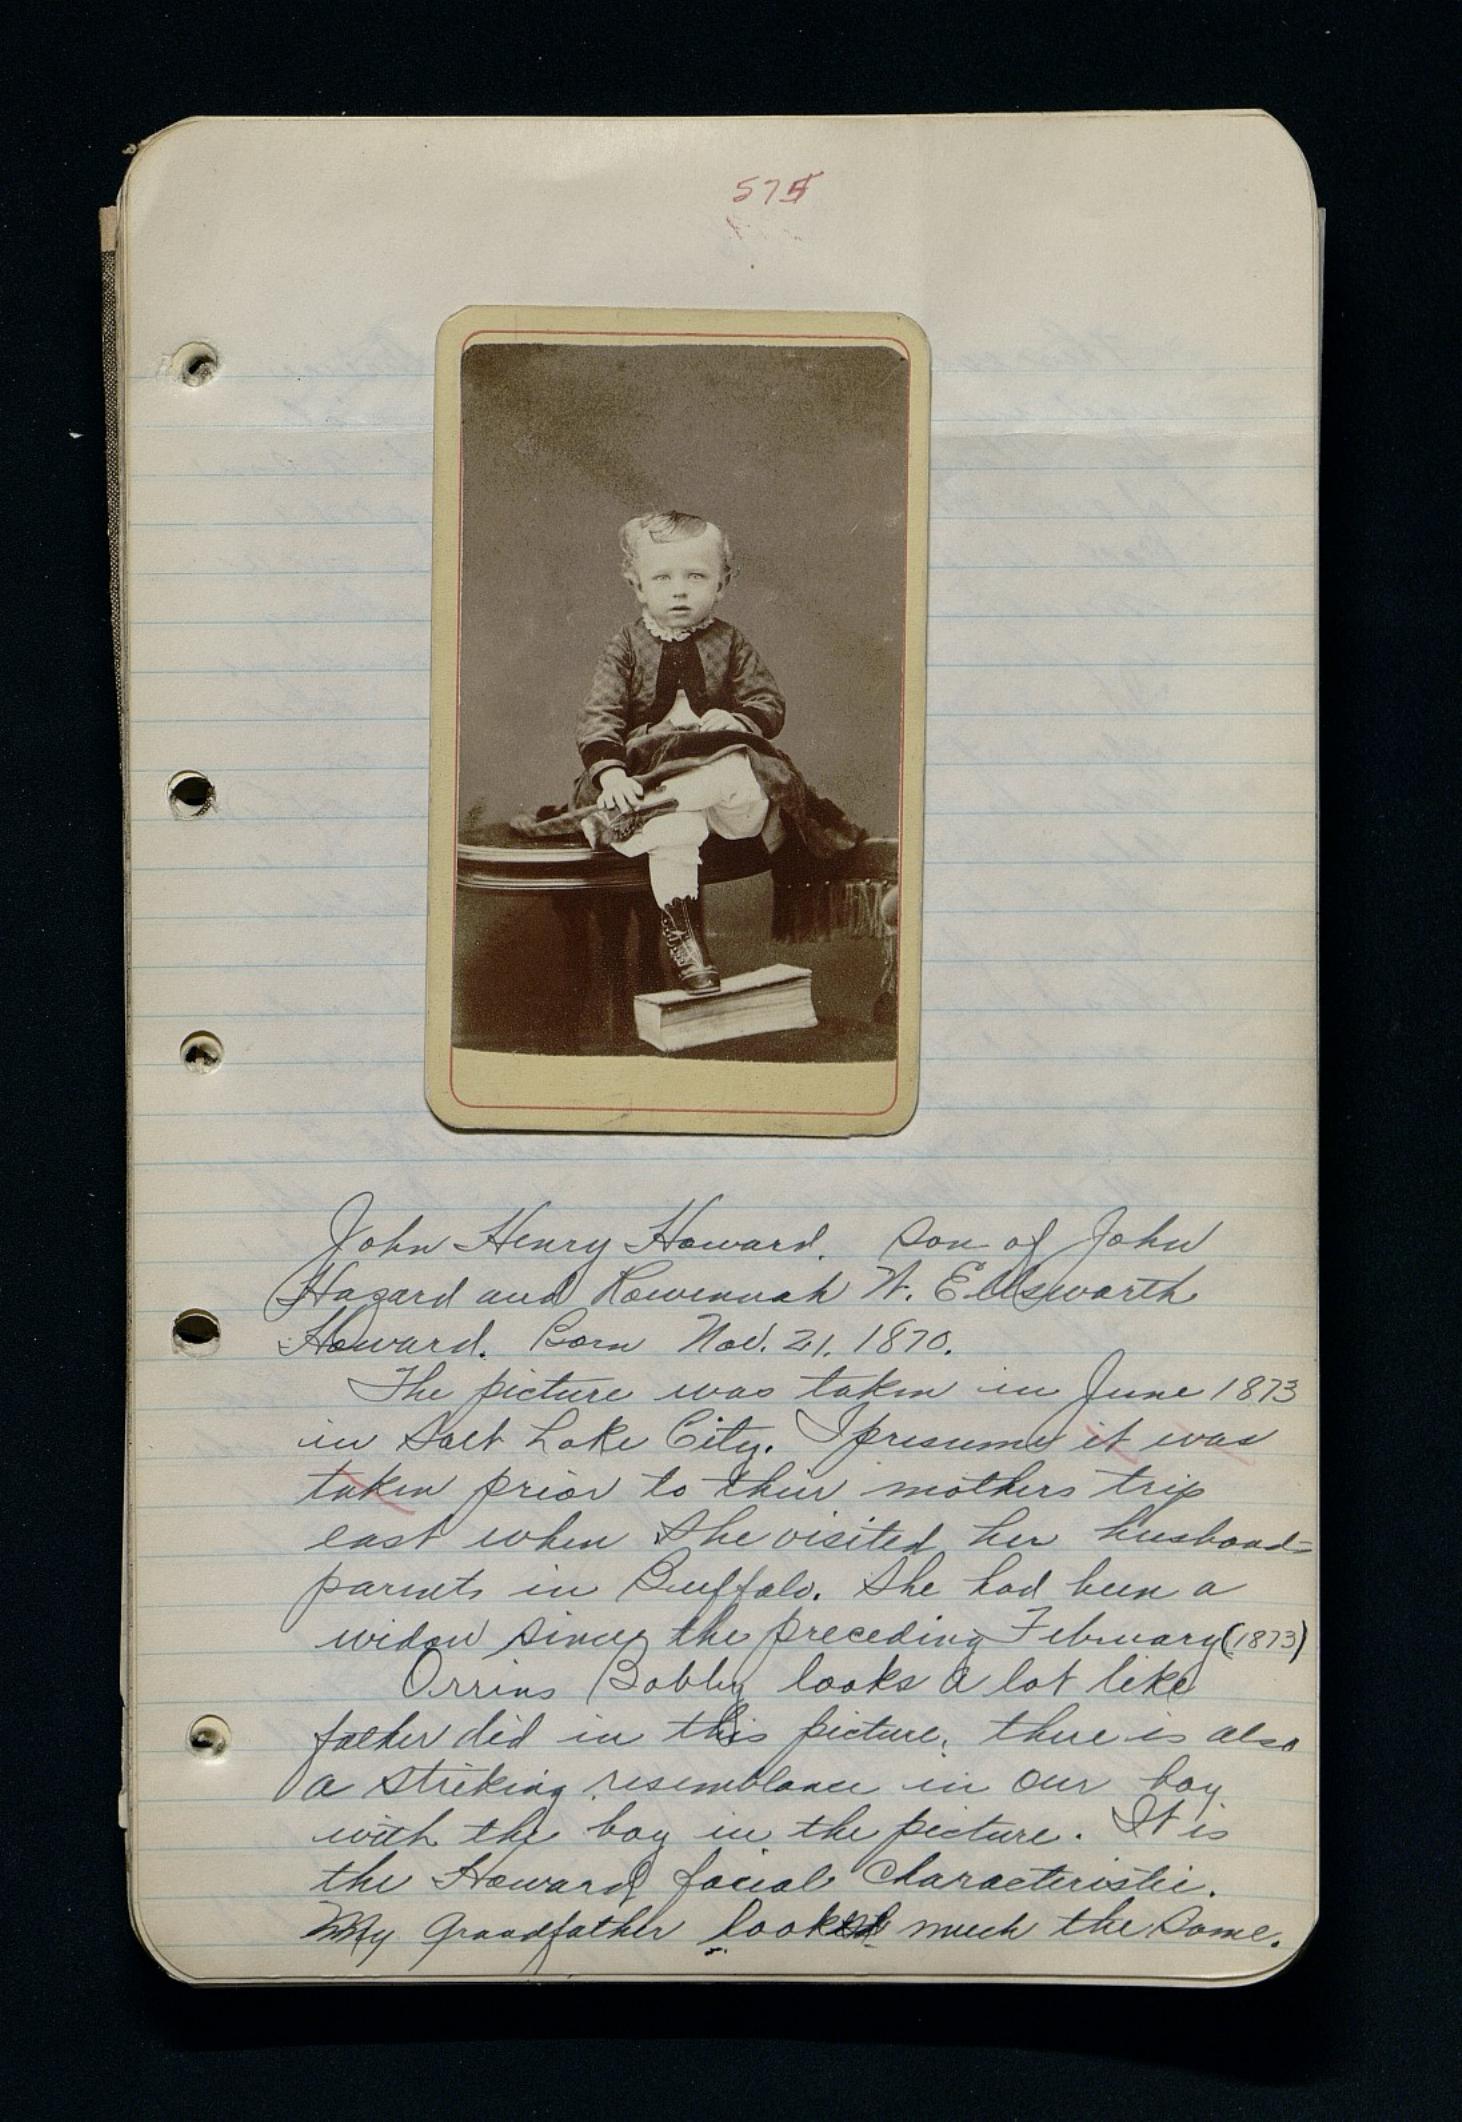 575
John Henry Howard. Son of John
Hazard and Rowennah W. Ellsworth
Howard. Born Nov. 21, 1870.
The picture was taken in June 1873
in Salt Lake City. I presume it was
taken prior to their mothers trip
east when she visited her husbands
parents in Buffalo. She had been a
widow since the preceding February (1873)
Orrins Bobby looks a lot like
father did in this picture, there is also
a striking resemblance in our boy
with the boy in the picture. It is
the Howard facial characteristic.
My Grandfather looked much the same.